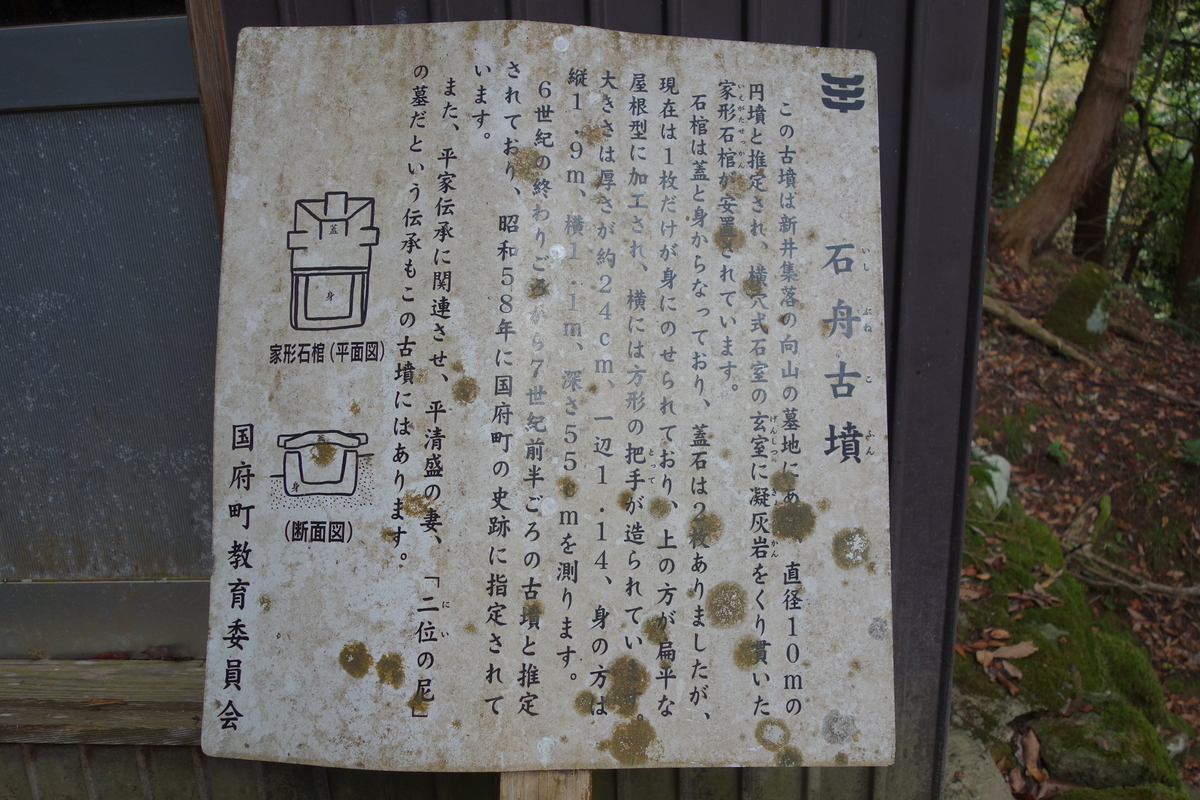 石舟古墳
いしぶねこふん
この古墳は新井集落の向山の墓地にあ 直径10mの
円墳と推定され、横穴式石室の玄室に凝灰岩をくり貫いた
家形石棺が安置されています。
石棺は蓋と身からなっており、蓋石は2枚ありましたが、
現在は1枚だけが身にのせられており、上の方が扁平な
屋根型に加工され、横には方形の把手が造られてい
大きさは厚さが約24cm、一辺1.14、身の方は
縦1.9m、横1.1m、深さ55cmを測ります。
6世紀の終わりごろから7世紀前半ごろの古墳と推定
されており、昭和58年に国府町の史跡に指定されて
います。
また、平家伝承に関連させ、平清盛の妻、「二位の尼」
の墓だという伝承もこの古墳にはあります。
蓋
身
家形石棺(平面図)
蓋
身
(断面図)
国府町教育委員会